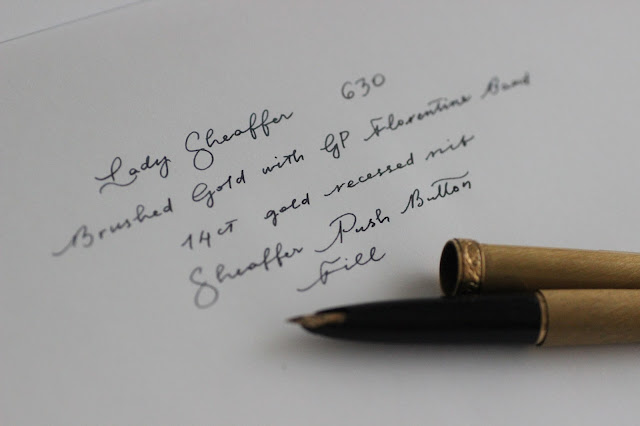 Lady Sheaffer 630
Brushed Gold with GP Florentine Band
14ct gold recessed nib
Sheaffer Push Button
Fill